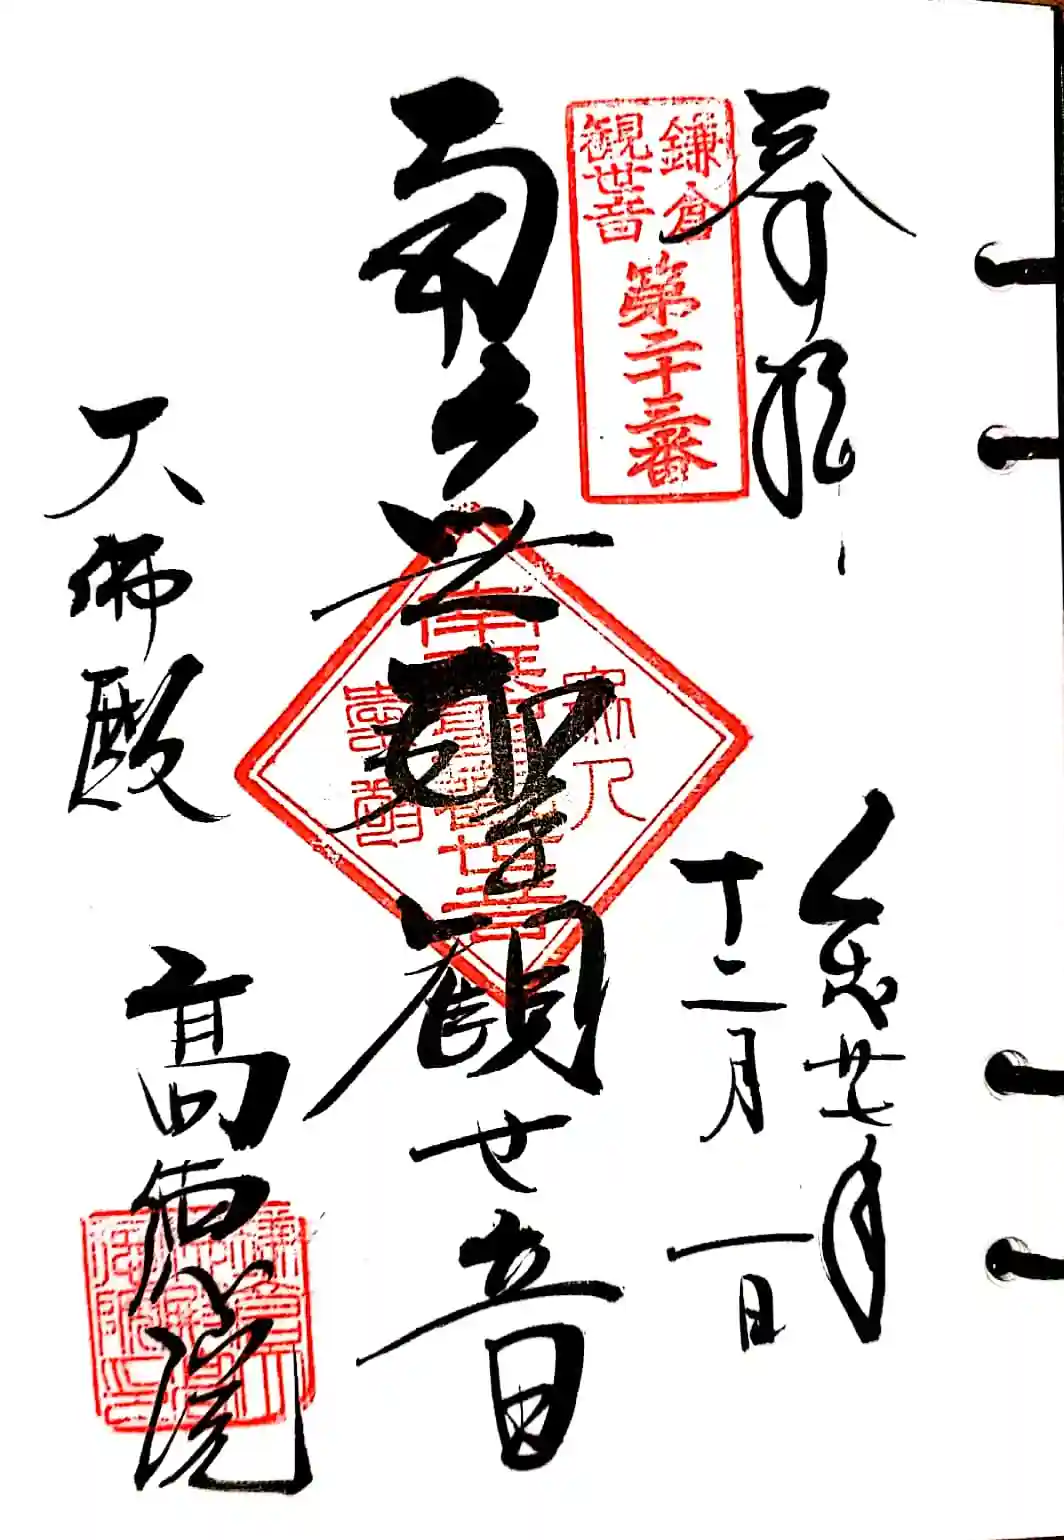 奉拝
平成廿七年
十二月一日
鎌倉
観世音
第二十三番
南無聖観世音
大佛殿
高徳院